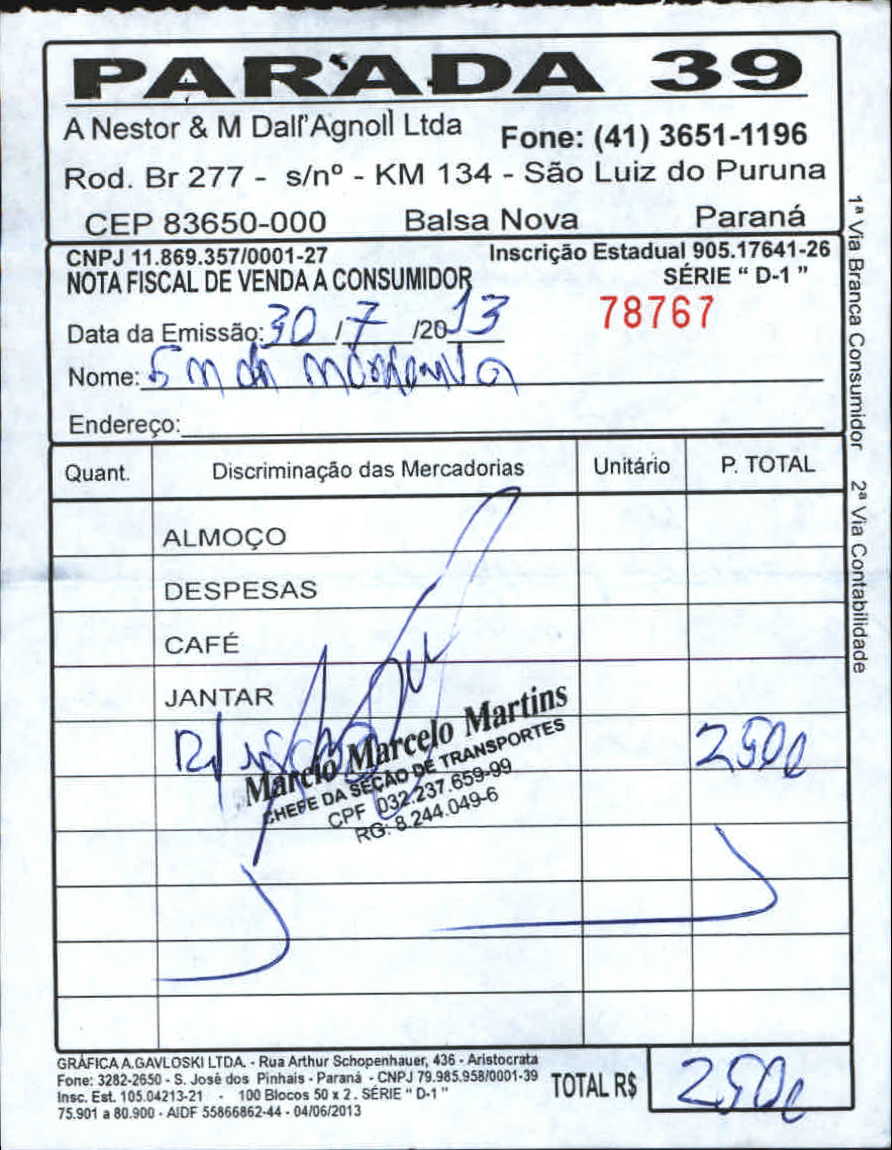 PARADA 39
A Nestor & M Dall'Agnoll Ltda Fone: (41) 3651-1196
Rod. Br 277 - s/nº - KM 134 - São Luiz do Puruna
CEP 83650-000 Balsa Nova Paraná
CNPJ 11.869.357/0001-27 Inscrição Estadual 905.17641-26
NOTA FISCAL DE VENDA A CONSUMIDOR SÉRIE “ D-1 ”
78767
Data da Emissão: 30 / 7 /20 13
Nome:
Endereço:
Quant. Discriminação das Mercadorias Unitário P. TOTAL
ALMOÇO
DESPESAS
CAFÉ
JANTAR
Marcio Marcelo Martins
CHEFE DA SEÇÃO DE TRANSPORTES
CPF 032.237.659-99
RG: 8.244.049-6
GRÁFICA A.GAVLOSKI LTDA. - Rua Arthur Schopenhauer, 436 - Aristocrata
Fone: 3282-2650 - S. José dos Pinhais - Paraná - CNPJ 79.985.958/0001-39
Insc. Est. 105.04213-21 - 100 Blocos 50 x 2. SÉRIE " D-1 "
75.901 a 80.900 - AIDF 55866862-44 - 04/06/2013
TOTAL R$
1ª Via Branca Consumidor 2ª Via Contabilidade